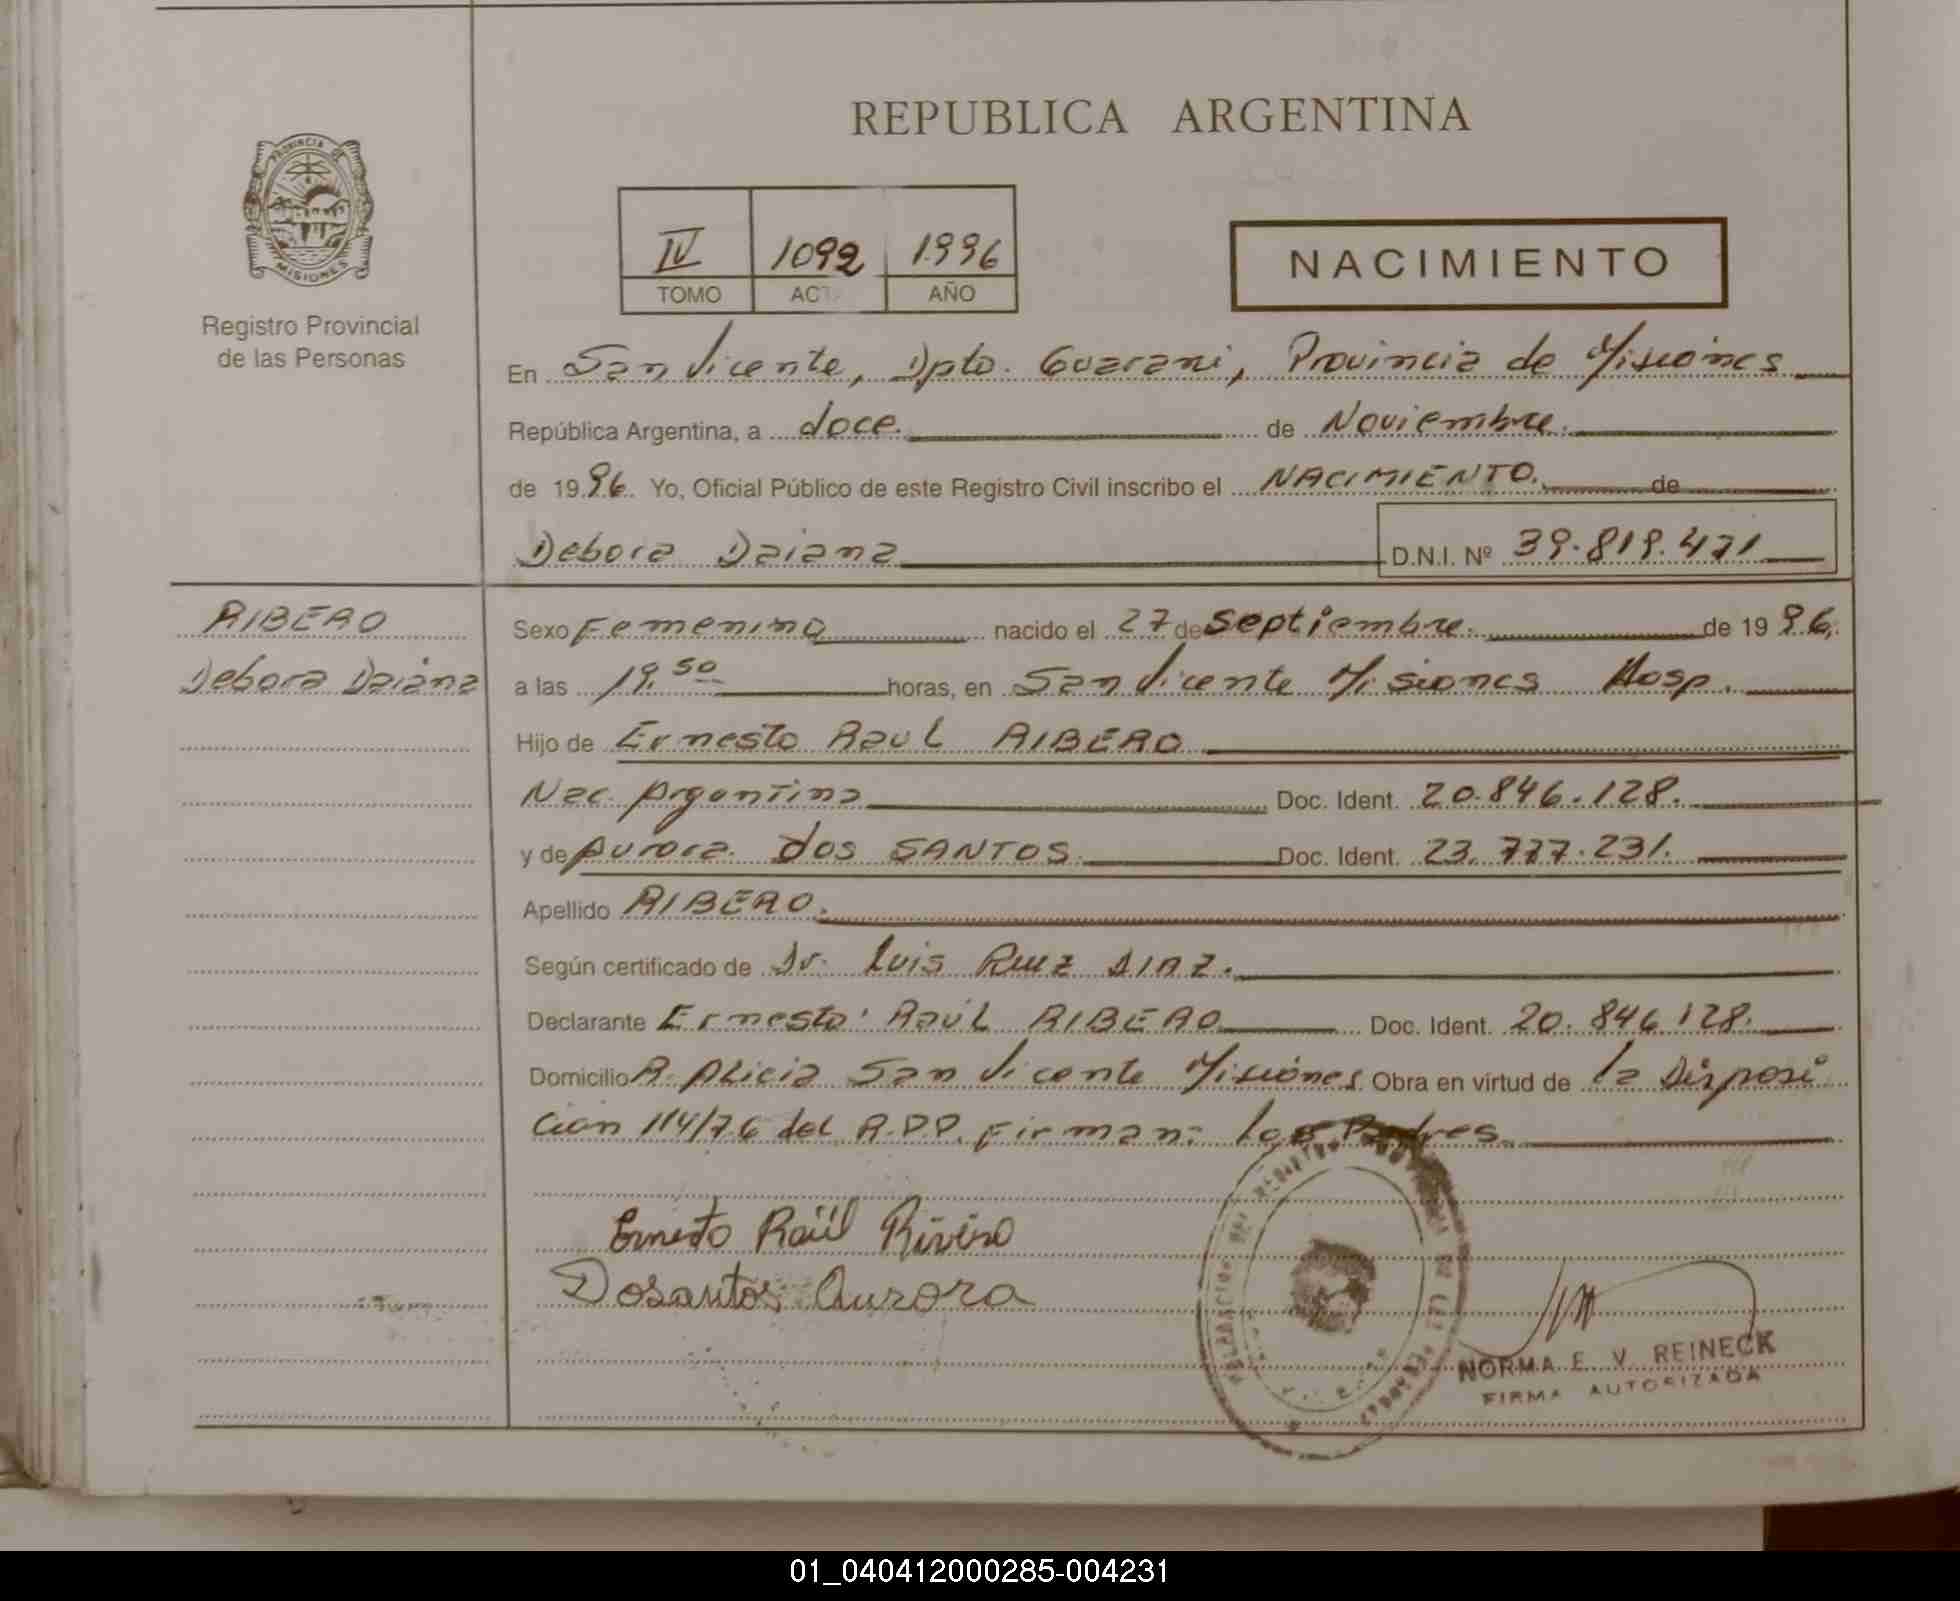 REPUBLICA ARGENTINA
PROVINCIA DE
MISIONES
Registro Provincial
de las Personas
IV 1092 1996
TOMO ACT AÑO
NACIMIENTO
En San Vicente, Dpto. Guarani, Provincia de Misiones
República Argentina, a doce. de Noviembre.
de 1996. Yo, Oficial Público de este Registro Civil inscribo el NACIMIENTO. de
Debora Daiana D.N.I. Nº 39.819.471
RIBERO
Debora Daiana
Sexo Femenino nacido el 27 de septiembre. de 1996.
a las 19.50 horas, en San Vicente Misiones Hosp.
Hijo de Ernesto Raul RIBERO
Nac. Argentina Doc. Ident. 20.846.128.
y de Aurora DOS SANTOS Doc. Ident. 23.777.231.
Apellido RIBERO.
Según certificado de Dr. Luis Ruiz DIAZ.
Declarante Ernesto Raúl RIBERO Doc. Ident. 20.846.128.
Domicilio A. Alicia San Vicente Misiones. Obra en virtud de la Disposi
cion 114/76 del R.P.P. Firman: Los Padres
Ernesto Raül Rivero
Dosantos Aurora
NORMA E. V. REINECK
FIRMA AUTORIZADA
01_040412000285-004231